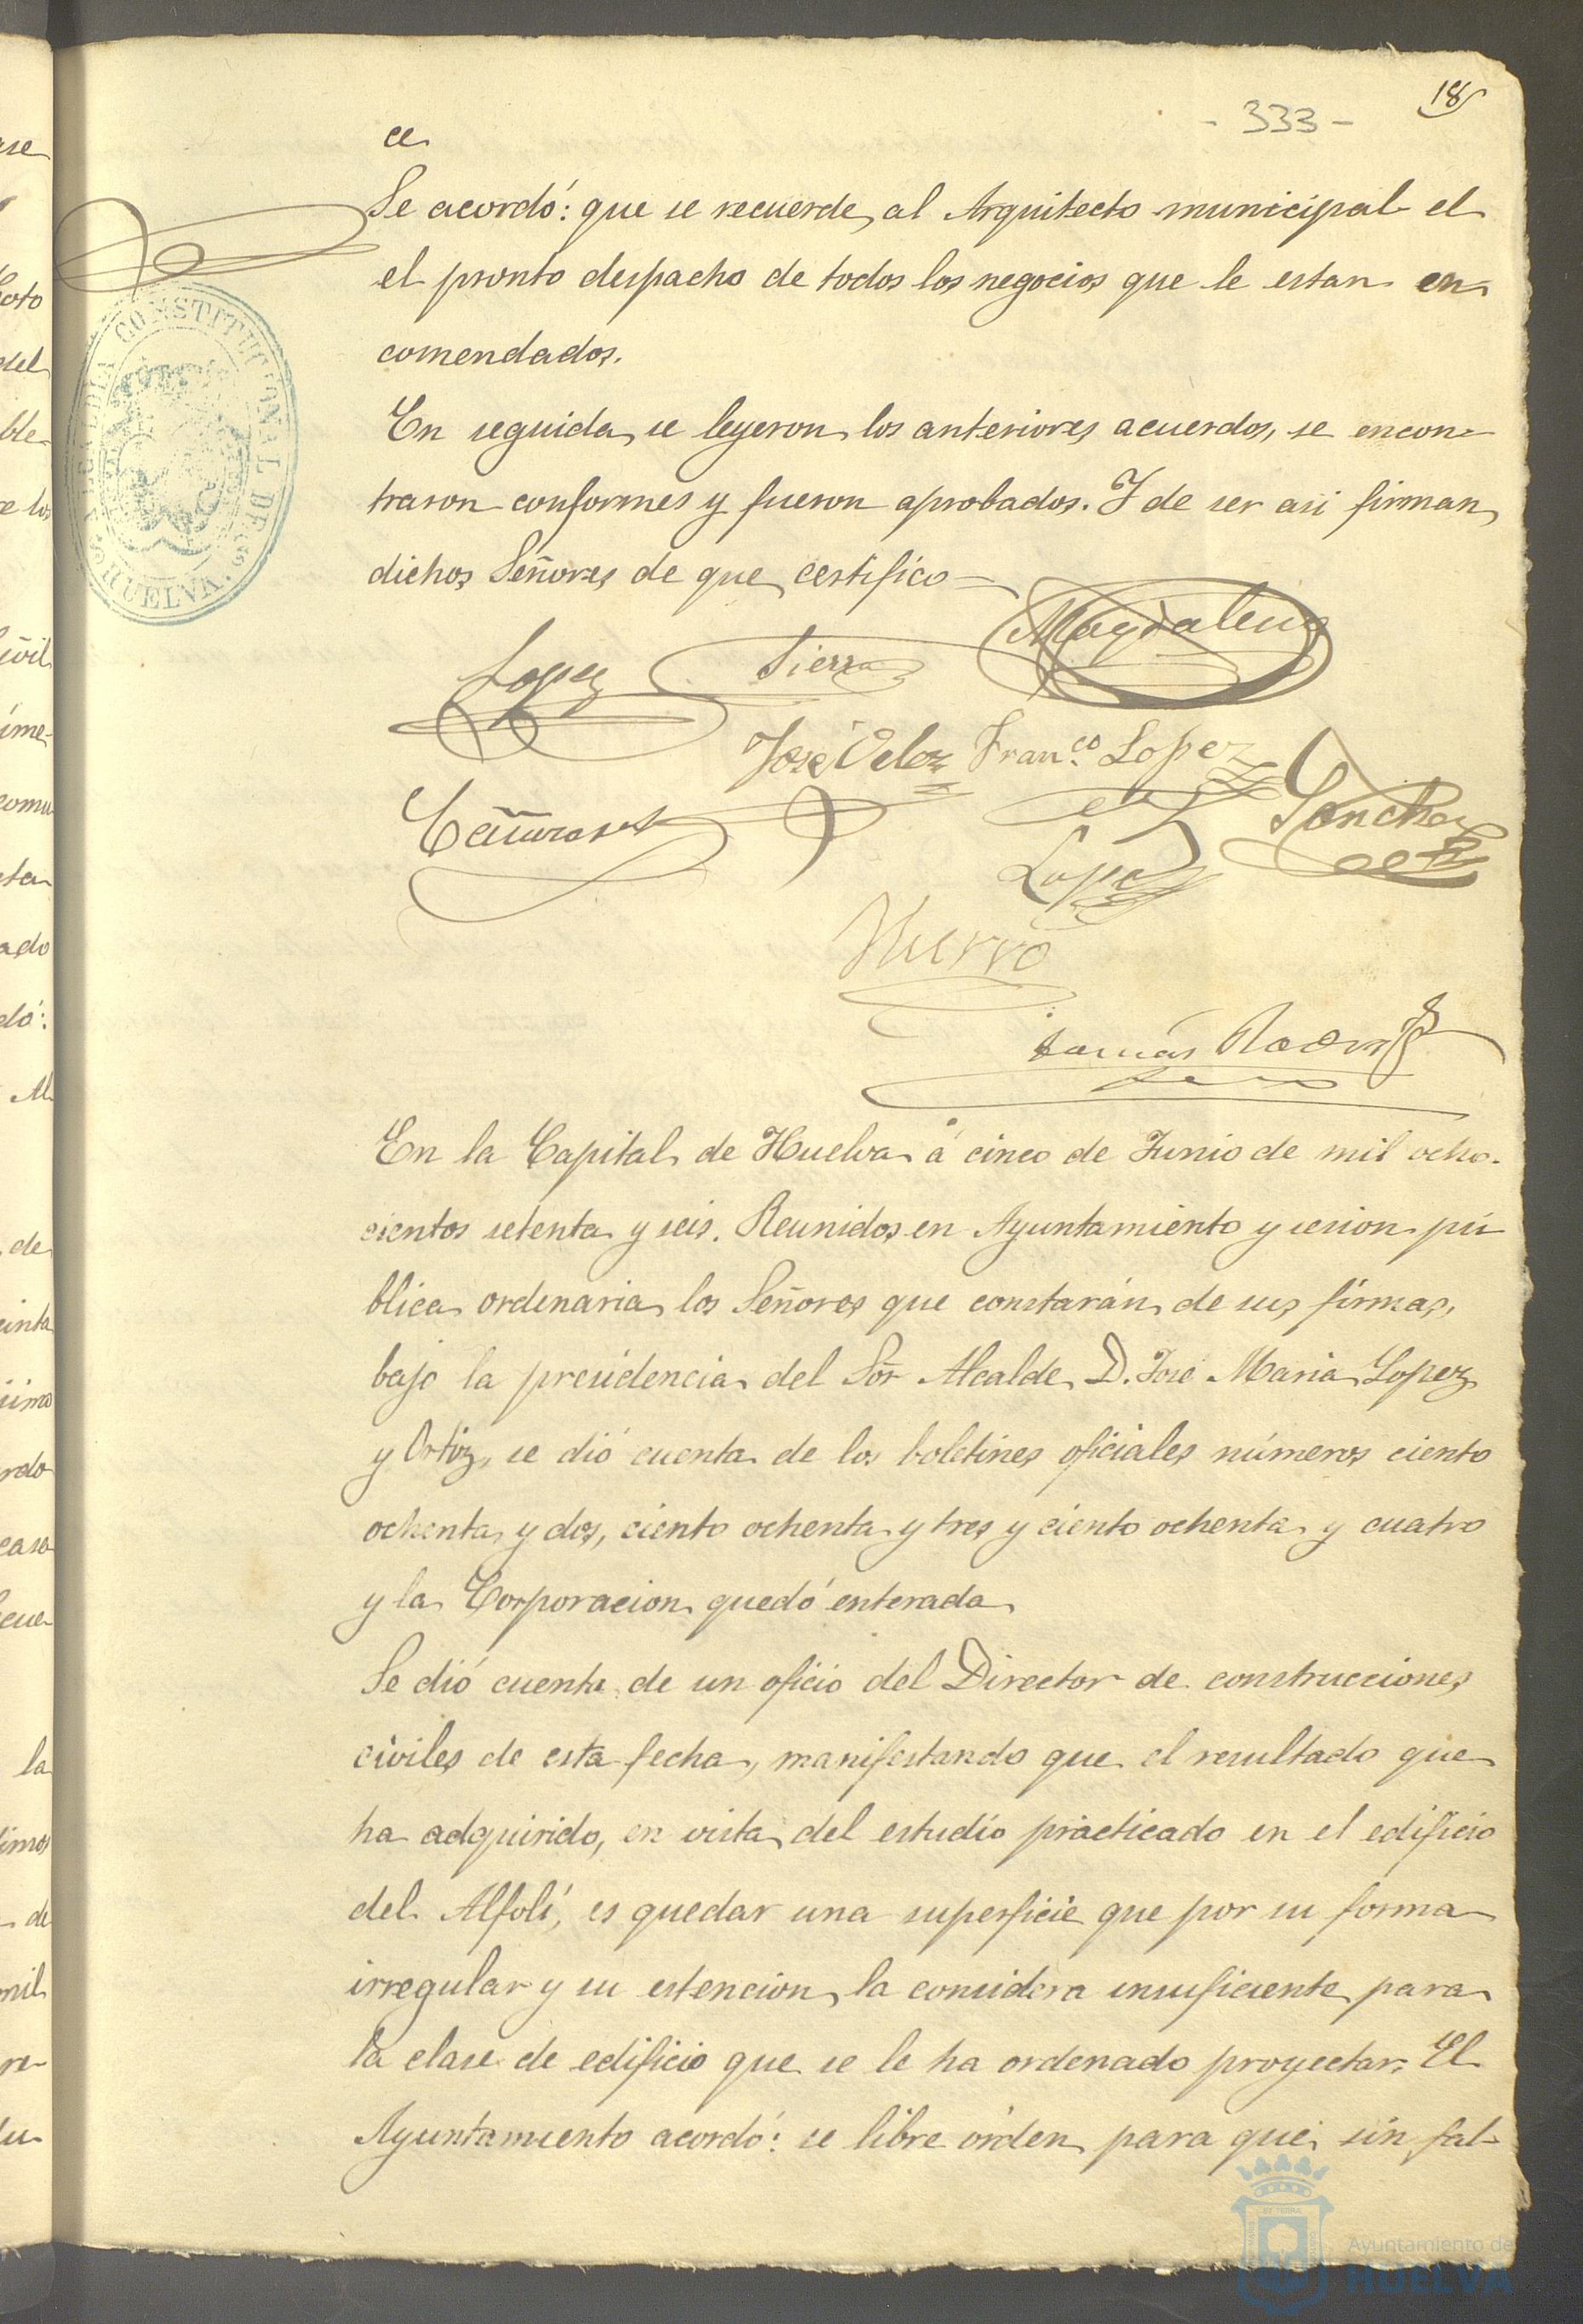 18
- 333 -
ce
Se acordó: que se recuerde al Arquitecto municipal el
el pronto despacho de todos los negocios que le estan en
comendados.
En seguida se leyeron los anteriores acuerdos, se encon-
traron conformes y fueron aprobados. Y de ser asi firman
dichos Señores de que certifico
Lopez Sierra Magdalena
José Veloz Fran.co Lopez
Sanchez
Lopez
Tomás Rodrig
En la Capital de Huelva á cinco de Junio de mil ocho-
cientos setenta y seis. Reunidos en Ayuntamiento y sesion pú
blica ordinaria los Señores que constarán de sus firmas,
bajo la presidencia del Sor Alcalde D. José Maria Lopez
y Ortiz, se dió cuenta de los boletines oficiales números ciento
ochenta y dos, ciento ochenta y tres y ciento ochenta y cuatro
y la Corporacion quedó enterada
Se dió cuenta de un oficio del Director de construcciones
civiles de esta fecha, manifestando que el resultado que
ha adquirido, en vista del estudio practicado en el edificio
del Alfolí, es quedar una superficie que por su forma
irregular y su estencion la considera insuficiente para
la clase de edificio que se le ha ordenado proyectar. El
Ayuntamiento acordó: se libre orden para que sin fal-
ALCALDIA CONSTITUCIONAL DE
HUELVA.
Ayuntamiento de
HUELVA